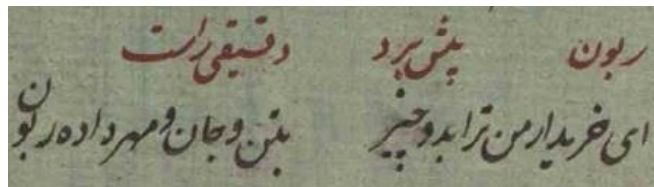 ربون پیش پرد دقیقی راست
ای خریدار من ترا بدو چیز بتن و جان و مهر داده ربون